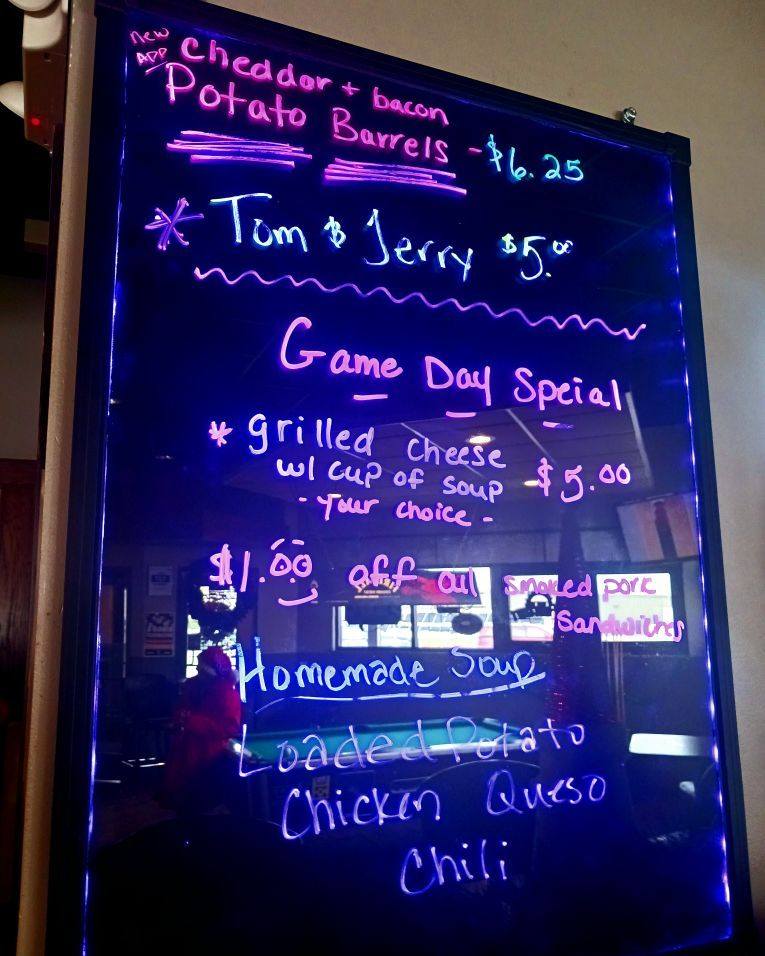 new
APP
cheddar + bacon
Potato Barrels - $6.25
* Tom & Jerry $5.00
Game Day Speial
* grilled cheese
w/ cup of soup $5.00
- Your choice -
$1.00 off all smoked pork
Sandwiches
Homemade Soup
Loaded Potato
Chicken Queso
Chili